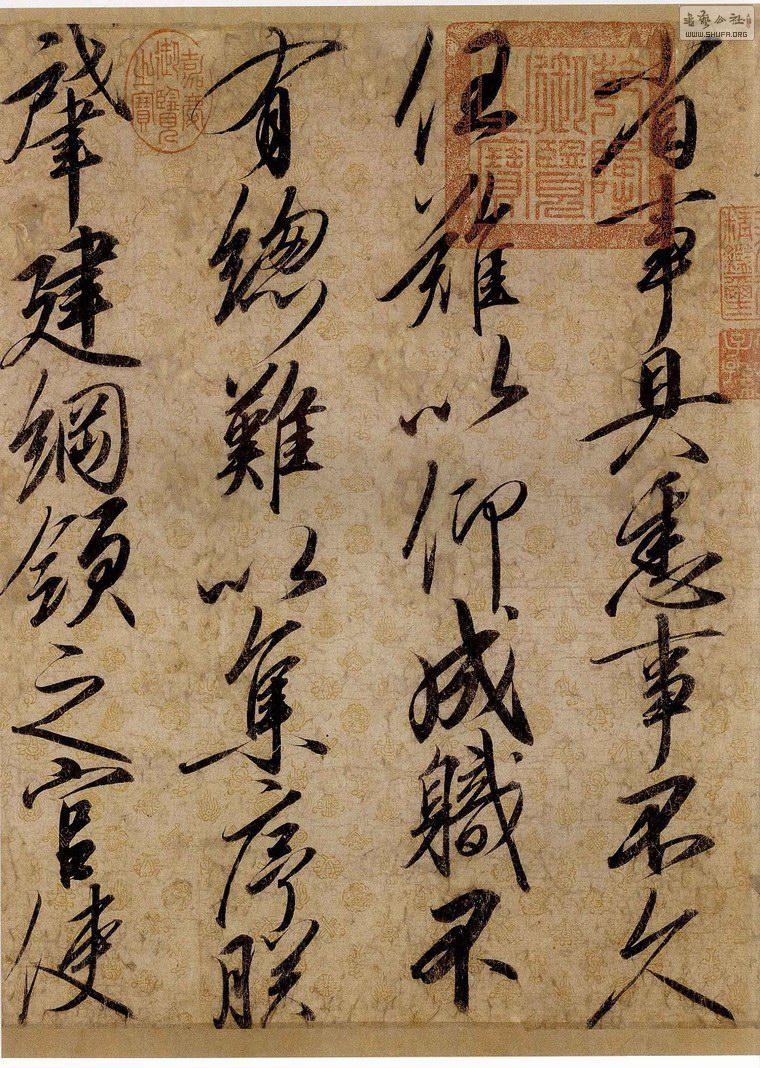 省事具悉事不久
任難以仰成職不
有總難以集序朕
肇建綱領之官使
乾隆御覽之寶
嘉慶御覽之寶
WWW.SHUFA.ORG